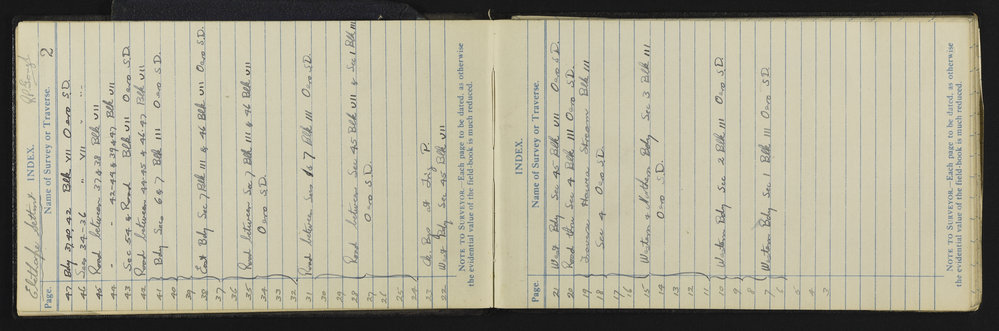 Elsthorpe Settlmt
INDEX.
2
Page. Name of Survey or Traverse.
47 Bdy 37, 40, 42 Blk VII Oero S.D.
46 Secs 34-36 " VII " "
45 Road between 37 & 38 Blk VII
44 " " 42-44 & 39 & 47 Blk VII
43 Sec 54 & Road Blk VII Oero S.D.
42 Road between 44-45 & 46-47 Blk VII
41 Bdy Secs 6 & 7 Blk III Oero S.D.
40
39
38 East Bdy Sec 7 Blk III & 46 Blk VII Oero S.D.
37
36
35 Road between Sec 7 Blk III & 46 Blk VII
34 Oero S.D.
33
32
31 Road between Secs 6 & 7 Blk III Oero S.D.
30
29
28 Road between Sec 45 Blk VII & Sec 1 Blk III
27 Oero S.D.
26
25
24
23 Ck Brgs at Trig P.
22 West Bdy Sec 45 Blk VII
NOTE TO SURVEYOR.—Each page to be dated, as otherwise
the evidential value of the field-book is much reduced.
INDEX.
Page. Name of Survey or Traverse.
21 West Bdy Sec 45 Blk VII Oero S.D.
20 Road thru Sec 4 Blk III Oero S.D.
19 Traverse Stream Blk III
18 Sec 4 Oero S.D.
17
16
15 Western & Northern Bdy Sec 3 Blk III
14 Oero S.D.
13
12
11
10 Western Bdy Sec 2 Blk III Oero S.D.
9
8
7 Western Bdy Sec 1 Blk III Oero S.D.
6
5
4
3
NOTE TO SURVEYOR.—Each page to be dated, as otherwise
the evidential value of the field-book is much reduced.